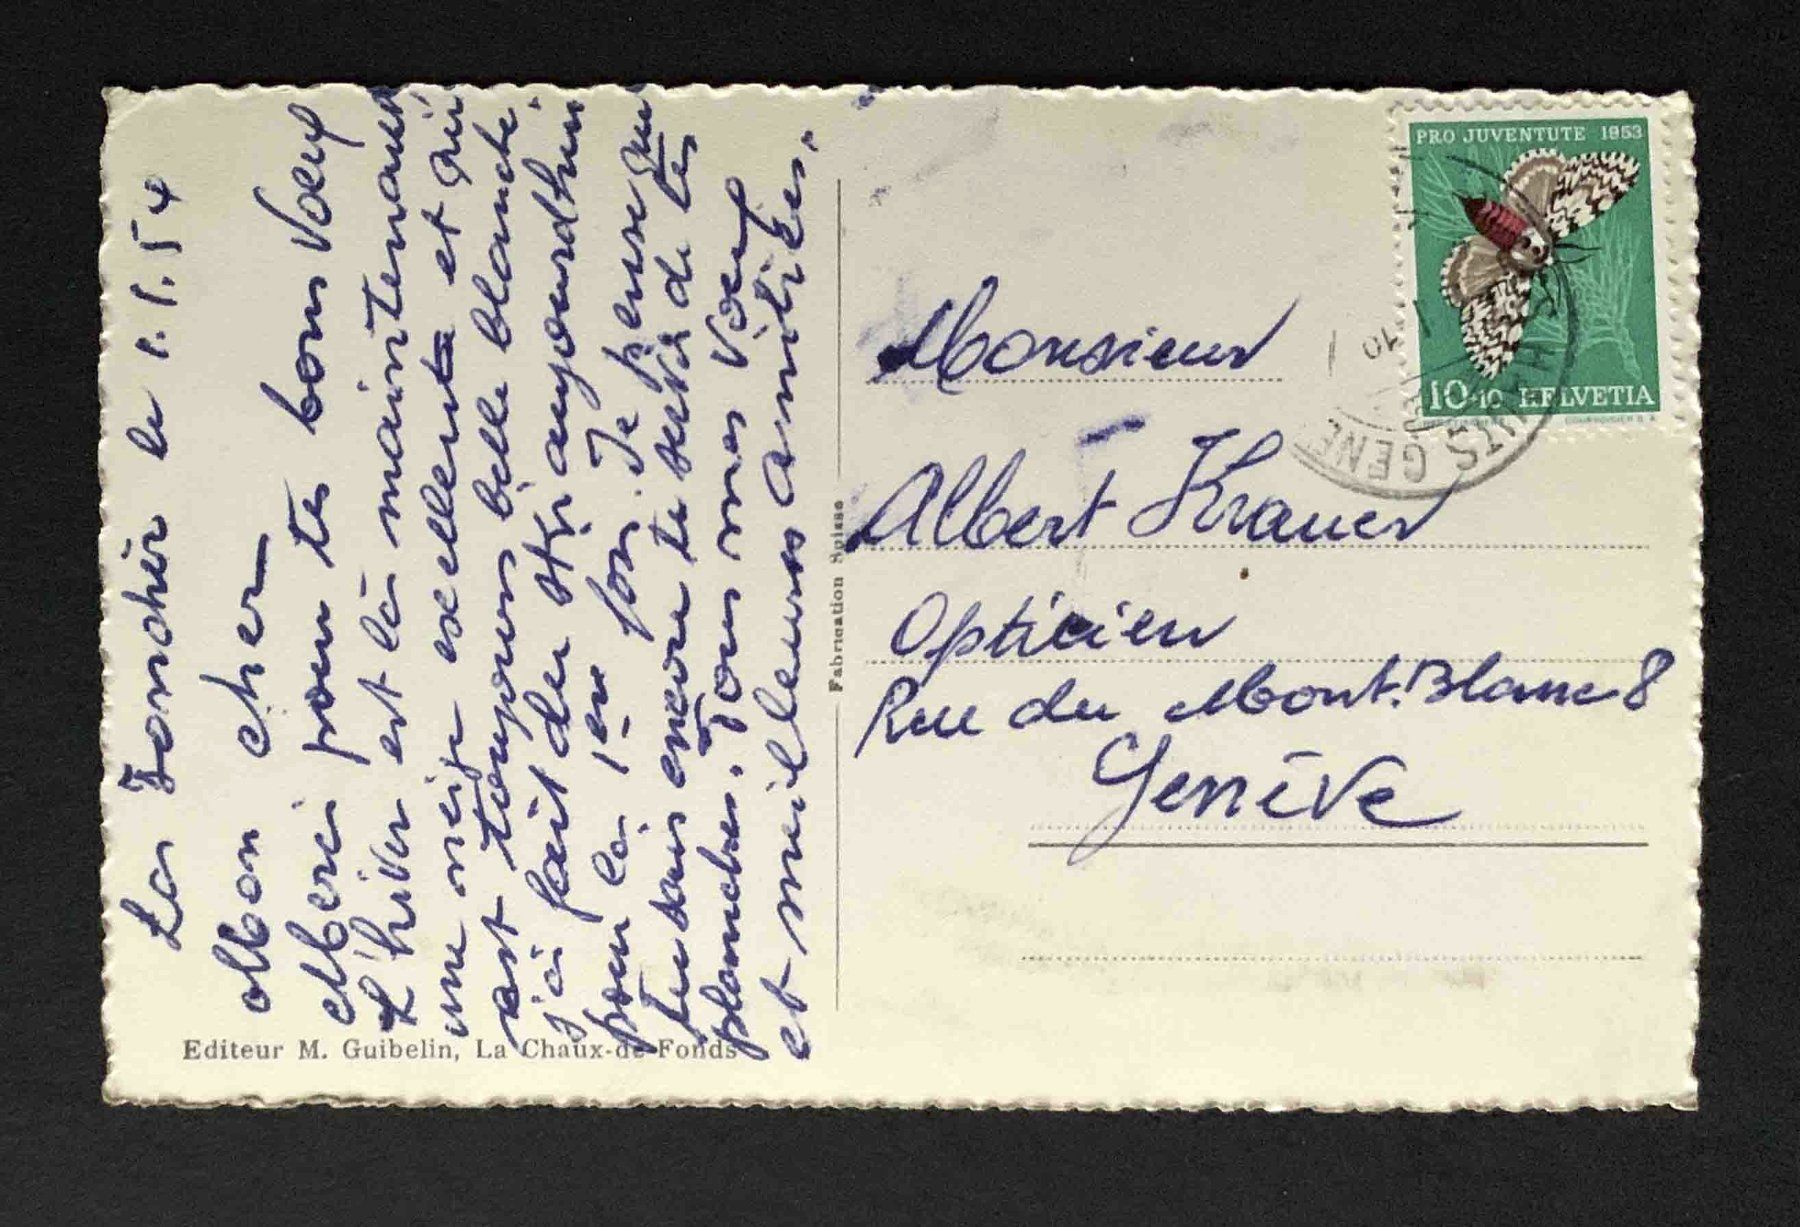 La Jonchère le 1.1.54
Mon cher
Merci pour tes bons Voeux
L'hiver est là maintenant
une neige excellente et qui
est toujours belle blanche.
j'ai fait du ski aujourdhui
pour la 1ère fois. Je pense que
tu vas encore te servir de tes
planches. Tous mes Voeux
et meilleures amitiés.
Editeur M. Guibelin, La Chaux-de-Fonds
Fabrication Suisse
PRO JUVENTUTE 1953
10+10 HELVETIA
COURVOISIER S.A.
HAUTS GENE
10
Monsieur
Albert Krauer
Opticien
Rue du Mont-Blanc 8
Genève